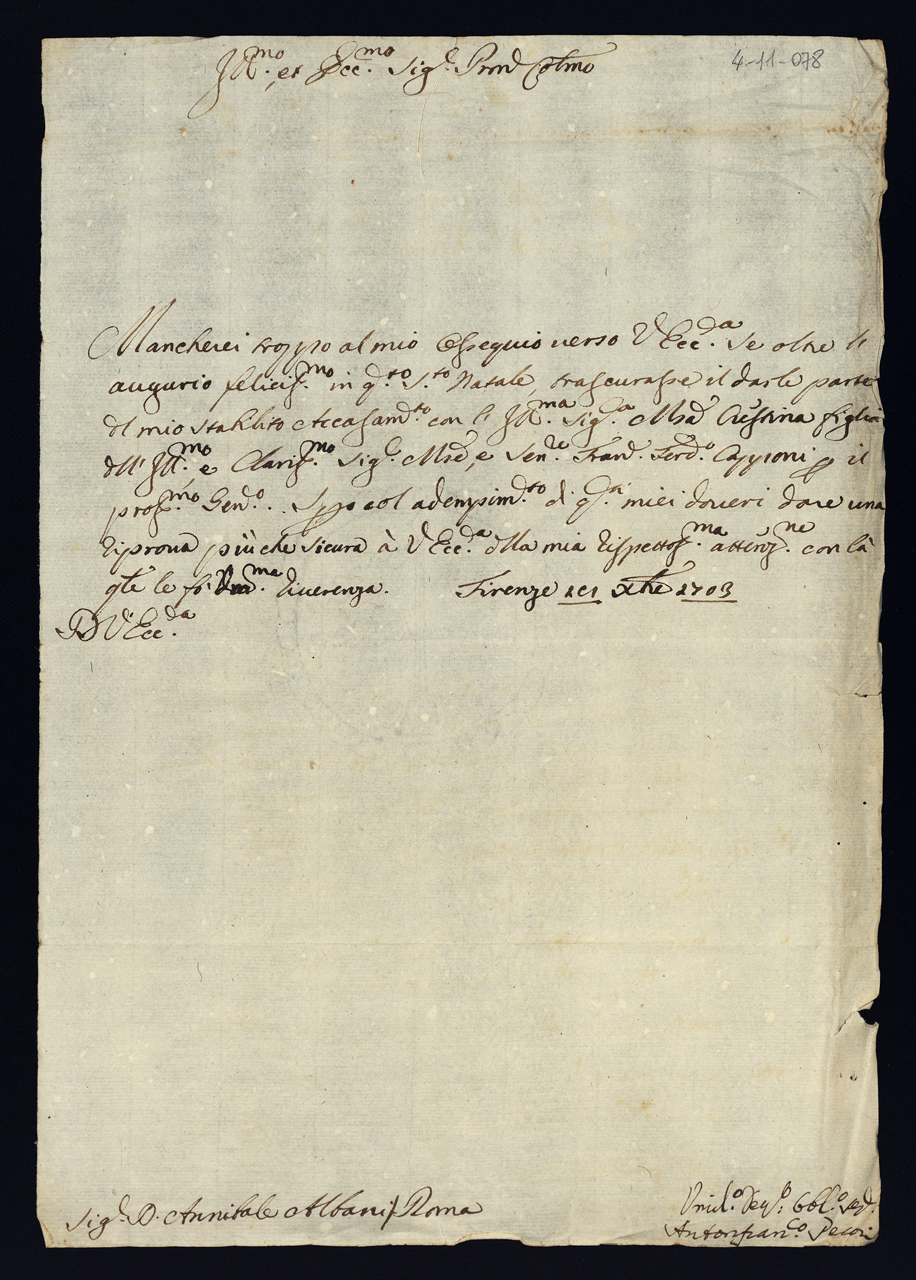 Ill.mo et Ecc.mo Sig.r Pron Colmo
4-11-078
Mancherei troppo al mio Ossequio verso V Ecc.da se oltre l'
augurio feliciss.mo in q.sto S.to Natale, trascurasse il darle parte
del mio stabilito Accasam.to con l' Ill.ma Sig.ra Mra Cristina figlia
dell' Ill.mo e Clariss.mo Sig.r Mse, e Sen.re Fran. Ferd.o Capponi p il
pross.mo Gen.o.. Spero col adempim.to di q.ti miei doveri dare una
riprova più che sicura à V Ecc.a della mia rispettoss.ma attenz.ne con la
qle le fò Um.ma riverenza. Firenze Xbre 1703
D V Ecc.da
Sig.r D. Annibale Albani / Roma
Anton fran.co Pecori